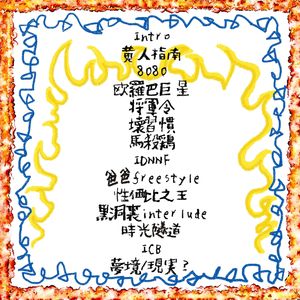 Intro
黄人指南
8080
欧羅巴巨星
将軍令
壞習慣
馬殺鷄
IDNNF
爸爸freestyle
性価比之王
黒洞裏interlude
時光隧道
ICB
夢境/現実?